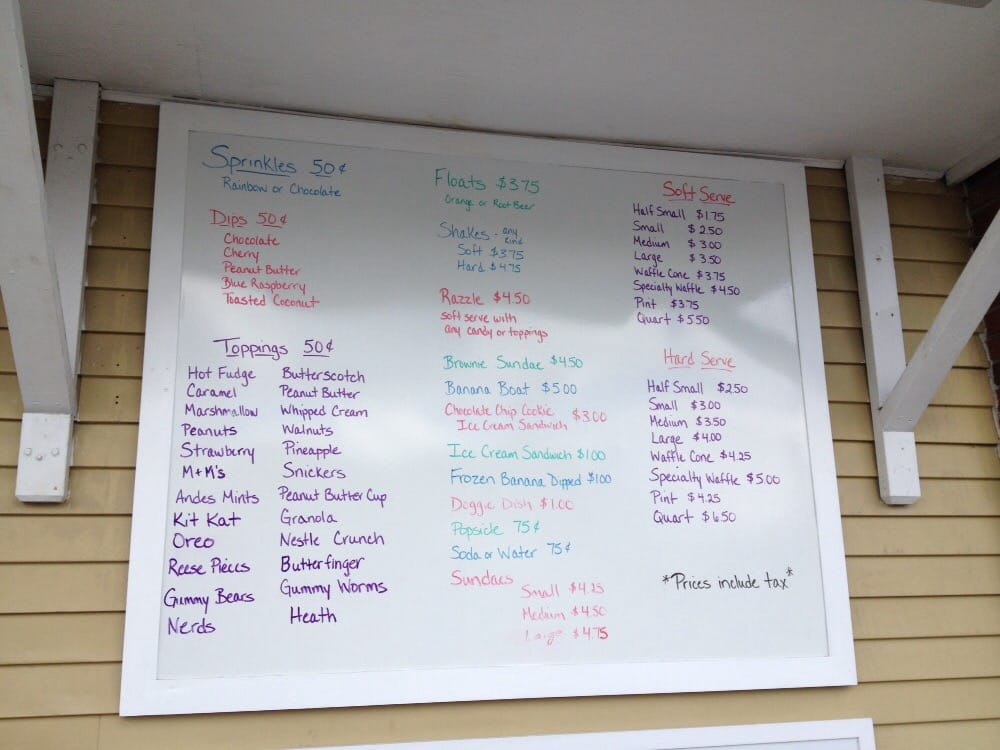 Sprinkles 50¢
Rainbow or Chocolate
Dips 50¢
Chocolate
Cherry
Peanut Butter
Blue Raspberry
Toasted Coconut
Toppings 50¢
Hot Fudge
Caramel
Marshmallow
Peanuts
Strawberry
M+M's
Andes Mints
Kit Kat
Oreo
Reese Pieces
Gummy Bears
Nerds
Butterscotch
Peanut Butter
Whipped Cream
Walnuts
Pineapple
Snickers
Peanut Butter Cup
Granola
Nestle Crunch
Butterfinger
Gummy Worms
Heath
Floats $3.75
Orange or Root Beer
Shakes - any kind
Soft $3.75
Hard $4.75
Razzle $4.50
soft serve with
any candy or toppings
Brownie Sundae $4.50
Banana Boat $5.00
Chocolate Chip Cookie
Ice Cream Sandwich $3.00
Ice Cream Sandwich $1.00
Frozen Banana Dipped $1.00
Doggie Dish $1.00
Popsicle 75¢
Soda or Water 75¢
Sundaes
Small $4.25
Medium $4.50
Large $4.75
Soft Serve
Half Small $1.75
Small $2.50
Medium $3.00
Large $3.50
Waffle Cone $3.75
Specialty Waffle $4.50
Pint $3.75
Quart $5.50
Hard Serve
Half Small $2.50
Small $3.00
Medium $3.50
Large $4.00
Waffle Cone $4.25
Specialty Waffle $5.00
Pint $4.25
Quart $6.50
*Prices include tax*